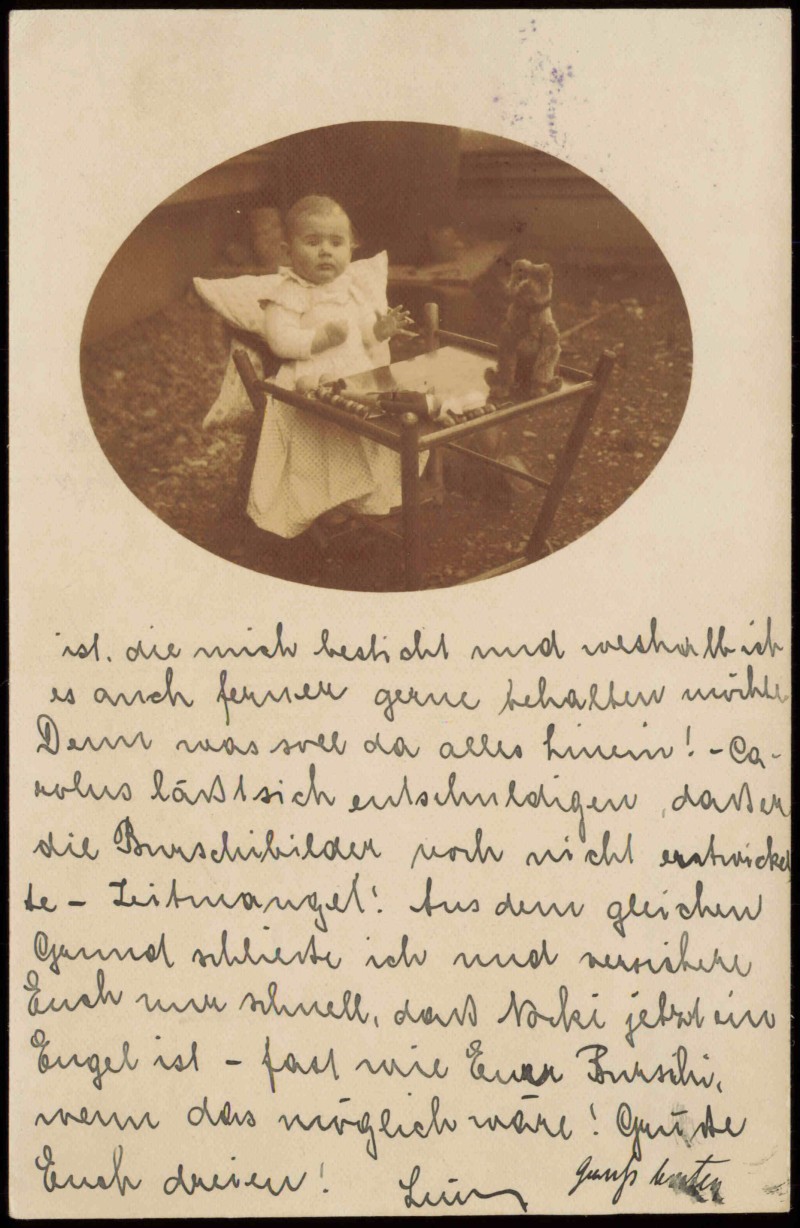 ist, die mich besticht und weshalb ich
es auch ferner gerne behalten möchte
Denn was soll da alles hinein! - Ca-
rolus läßt sich entschuldigen, daß er
die Burschibilder noch nicht entwickel
te - Zeitmangel! Aus dem gleichen
Grund schließe ich und versichere
Euch nur schnell, daß Nocki jetzt ein
Engel ist - fast wie Euer Burschi,
wenn das möglich wäre! Grüße
Euch dreien!